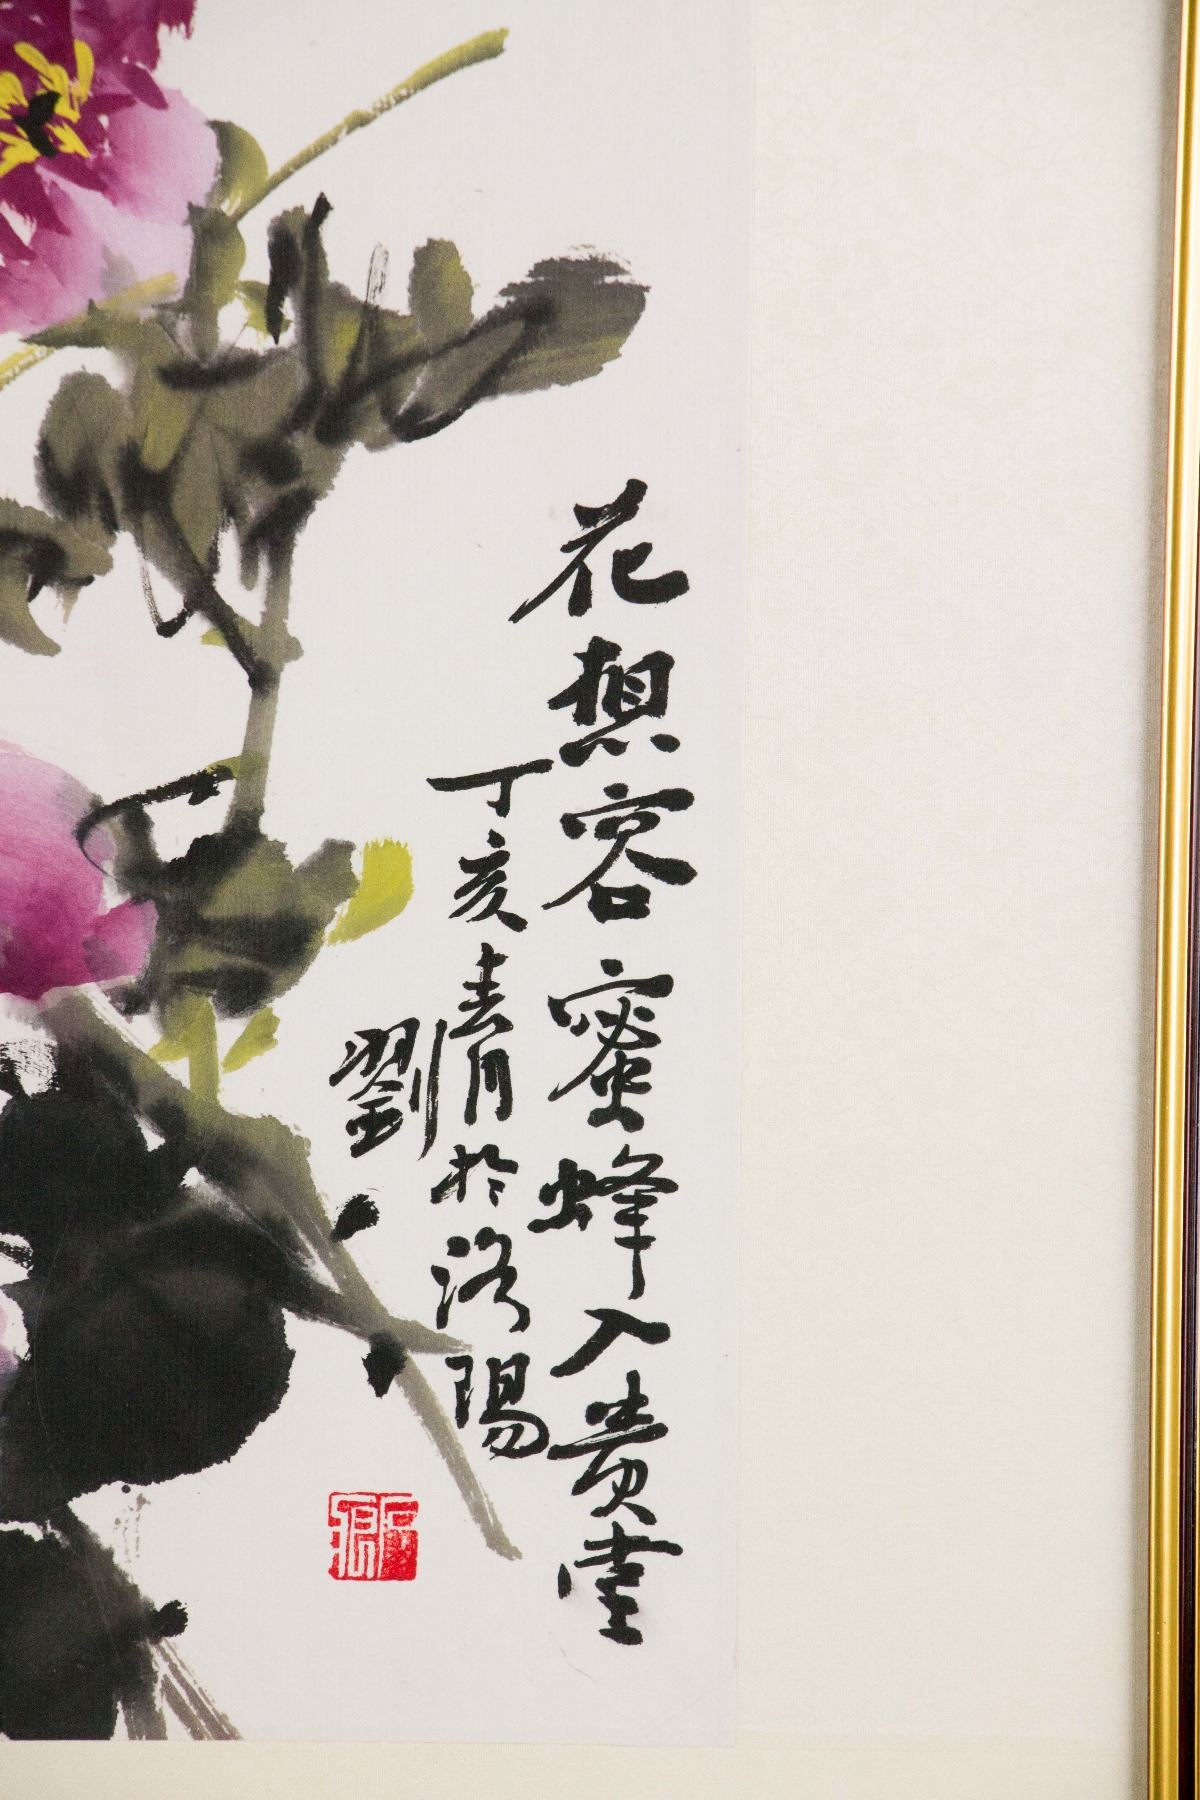 花想容蜜蜂入貴堂
丁亥春月於洛陽
劉